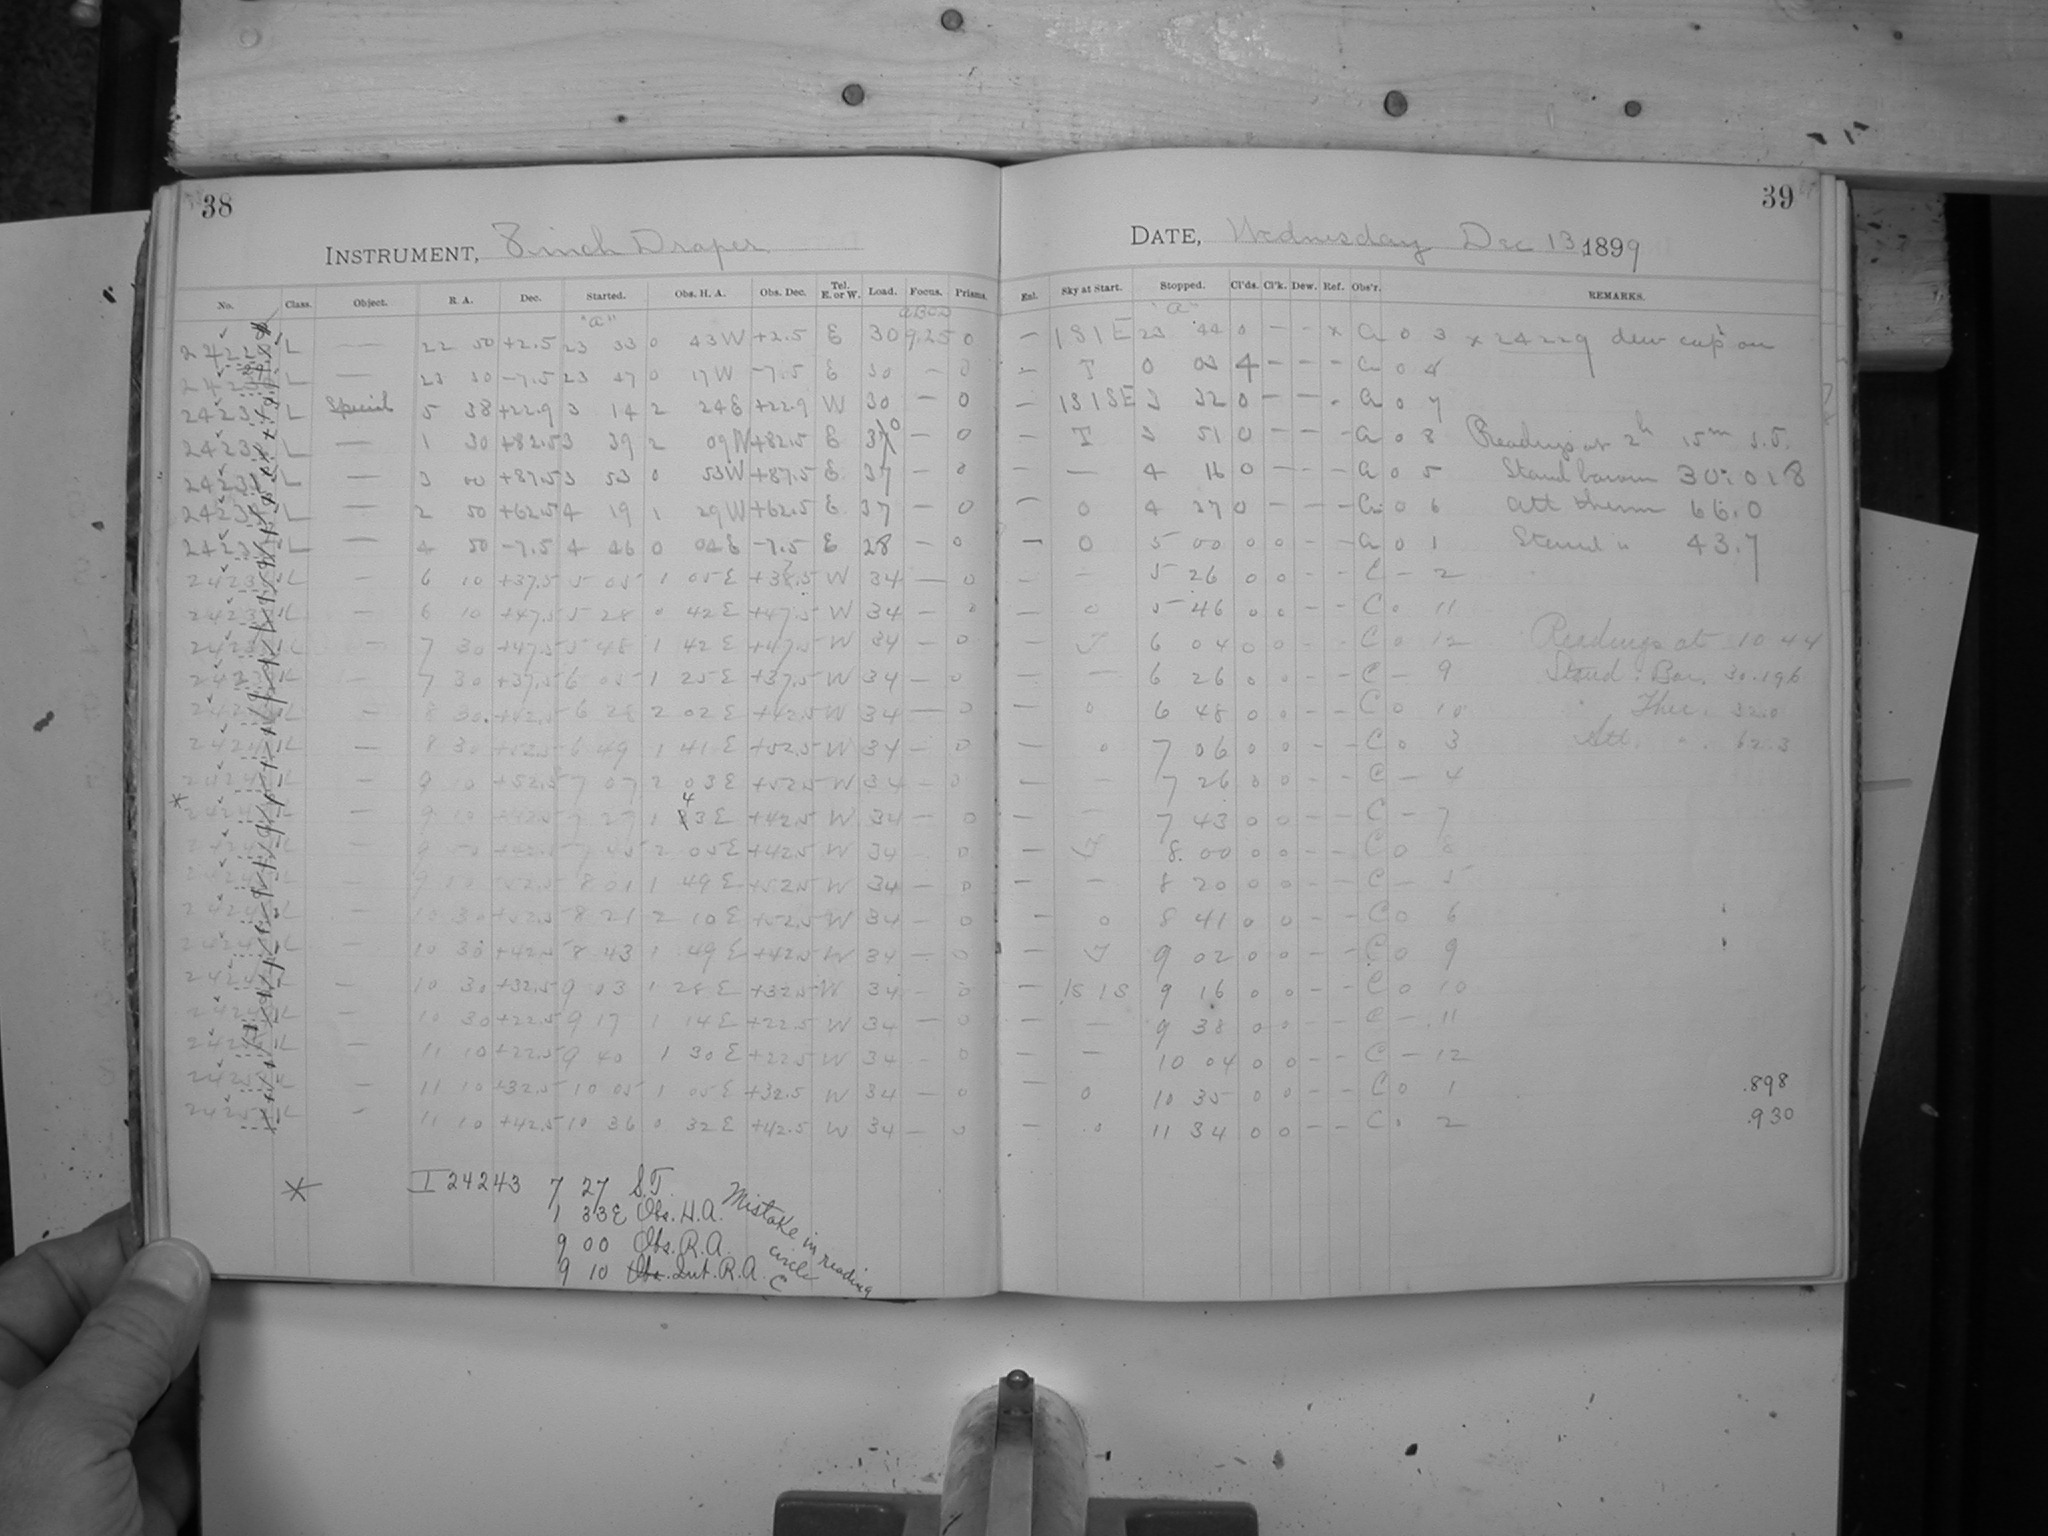 38
INSTRUMENT, 8 inch Draper
No. Class. Object. R. A. Dec. Started. Obs. H. A. Obs. Dec. Tel. E. or W. Load. Focus. Prisms.
"a" ABCD
L — 22 50 +2.5 23 33 0 43 W +2.5 E 30 9.25 0
L — 23 30 -7.5 23 47 0 17 W -7.5 E 30 - 0
L Special 5 38 +22.9 3 14 2 24 E +22.9 W 30 - 0
L — 1 30 +82.5 3 39 2 09 W +82.5 E - 0
L — 3 00 +87.5 3 53 0 53 W +87.5 E 37 - 0
L — 2 50 +62.5 4 19 1 29 W +62.5 E 37 - 0
L — 4 50 -7.5 4 46 0 04 E -7.5 E 28 - 0
L — 6 10 +37.5 5 05 1 05 E W 34 — 0
L — 6 10 +47.5 5 28 0 42 E +47.5 W 34 - 0
L — 7 30 +47.5 5 48 1 42 E +47.5 W 34 - 0
L — 7 30 +37.5 6 05 1 25 E +37.5 W 34 - 0
L — 8 30 +42.5 6 28 2 02 E +42.5 W 34 — 0
L — 8 30 +52.5 6 49 1 41 E +52.5 W 34 - 0
L — 9 10 +52.5 7 07 2 03 E +52.5 W 34 - 0
* L — 9 10 +42.5 7 27 1 43 E +42.5 W 34 - 0
L — +42.5 7 45 2 05 E +42.5 W 34 - 0
L — +52.5 8 01 1 49 E +52.5 W 34 - 0
L — 10 30 +52.5 8 21 2 10 E +52.5 W 34 - 0
L — 10 30 +42.5 8 43 1 49 E +42.5 W 34 - 0
L — 10 30 +32.5 9 03 1 28 E +32.5 W 34 - 0
L — 10 30 +22.5 9 17 1 14 E +22.5 W 34 — 0
L — 11 10 +22.5 9 40 1 30 E +22.5 W 34 - 0
L — 11 10 +32.5 10 05 1 05 E +32.5 W 34 - 0
L - 11 10 +42.5 10 36 0 32 E +42.5 W 34 — 0
* I 24243 7 27 S.T.
1 33 E Obs. H.A.
9 00 Obs. R.A.
9 10 Int. R.A.
Mistake in reading
circle
C
39
DATE, Wednesday Dec 13, 1899
Enl. Sky at Start. Stopped. Cl'ds. Cl'k. Dew. Ref. Obs'r. REMARKS.
"a"
- 1S1E 23 44 0 - - x a 0 3 x 24229 dew cap on
- T 0 03 4 - - - a 0 4
- 1S1SE 3 32 0 - - - a 0 7
- T 3 51 0 - - - a 0 8 Readings at 2h 15m S.T.
- — 4 16 0 - - - a 0 5 Stand barom 30.018
- 0 4 37 0 - - - a 0 6 att therm 66.0
- 0 5 00 0 0 - - a 0 1 Stand " 43.7
- - 5 26 0 0 - - C - 2
- 0 5 46 0 0 - - C 0 11
- T 6 04 0 0 - - C 0 12 Readings at 10 44
- — 6 26 0 0 - - C - 9 Stand. Bar. 30.196
- 0 6 48 0 0 - - C 0 10 Ther. 32.0
- 0 7 06 0 0 - - C 0 3 Att. " 62.3
- — 7 26 0 0 - - C - 4
- — 7 43 0 0 - - C - 7
- T 8 00 0 0 - - C 0 8
- - 8 20 0 0 - - C - 5
- 0 8 41 0 0 - - C 0 6
- T 9 02 0 0 - - C 0 9
- 1S1S 9 16 0 0 - - C 0 10
- — 9 38 0 0 - - C - 11
- — 10 04 0 0 - - C - 12
- 0 10 35 0 0 - - C 0 1 .898
- 0 11 34 0 0 - - C 0 2 .930